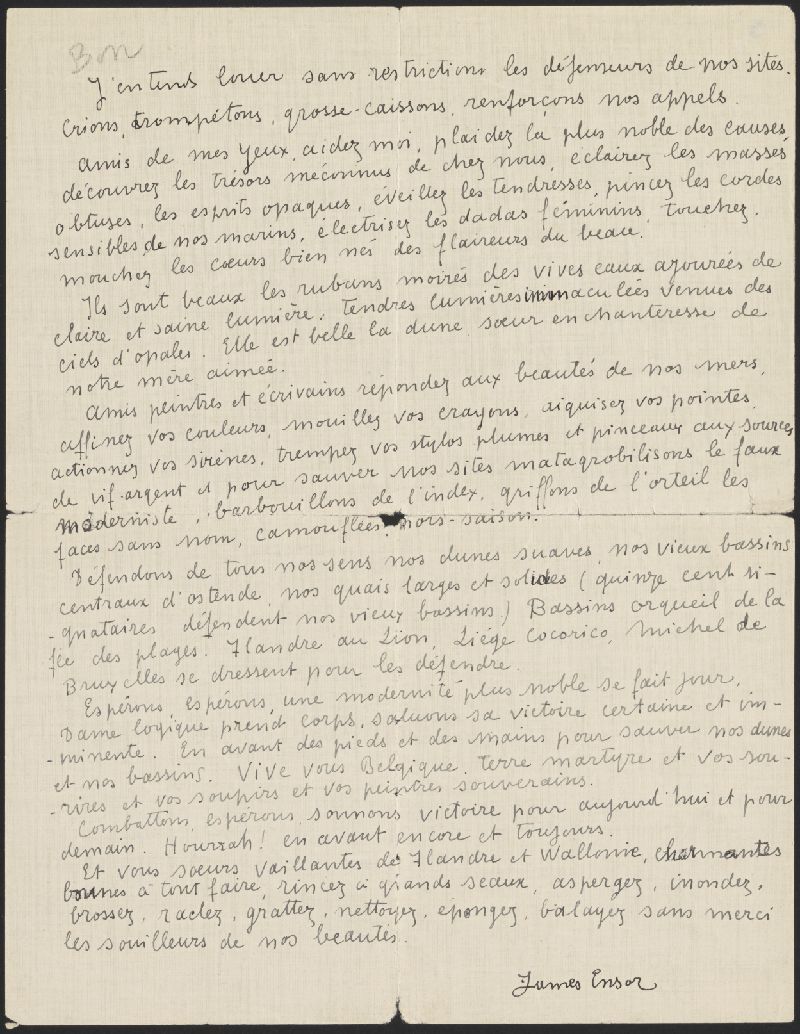 Bon
J'entends louer sans restrictions les défenseurs de nos sites.
Crions, trompétons, grosse-caissons, renforçons nos appels.
Amis de mes yeux, aidez moi, plaidez la plus noble des causes,
découvrez les trésors méconnus de chez nous, éclairez les masses
obtuses, les esprits opaques, éveillez les tendresses, pincez les cordes
sensibles de nos marins, électrisez les dadas féminins, touchez,
mouchez les cœurs bien nés des flaireurs du beau.
Ils sont beaux les rubans moirés des vives eaux azourées de
claire et saine lumière. Tendres lumières immaculées venues des
ciels d'opales. Elle est belle la dune, sœur enchanteresse de
notre mère aimée.
Amis peintres et écrivains répondez aux beautés de nos mers,
affinez vos couleurs, mouillez vos crayons, aiguisez vos pointes,
actionnez vos sirènes, trempez vos stylos plumes et pinceaux aux sources
de vif-argent et pour sauver nos sites matagrobilisons le faux
moderniste, barbouillons de l'index, griffons de l'orteil les
faces sans nom, camouflées, hors-saison.
Défendons de tous nos sens nos dunes suaves, nos vieux bassins
centraux d'ostende, nos quais larges et solides (quinze cent si-
-gnataires défendent nos vieux bassins) Bassins orgueil de la
fée des plages. Flandre au Lion, Liége Cocorico, Michel de
Bruxelles se dressent pour les défendre.
Espérons espérons, une modernité plus noble se fait jour,
Dame logique prend corps, saluons sa victoire certaine et im-
-minente. En avant des pieds et des mains pour sauver nos dunes
et nos bassins. Vive vous Belgique, terre martyre et vos sou-
-rires et vos soupirs et vos peintres souverains.
Combattons, espérons, sonnons victoire pour aujourd'hui et pour
demain. Hourrah! en avant encore et toujours.
Et vous sœurs vaillantes de Flandre et Wallonie, charmantes
bonnes à tout faire, rincez à grands seaux, aspergez, inondez,
brossez, raclez, grattez, nettoyez, épongez, balayez sans merci
les souilleurs de nos beautés.
James Ensor